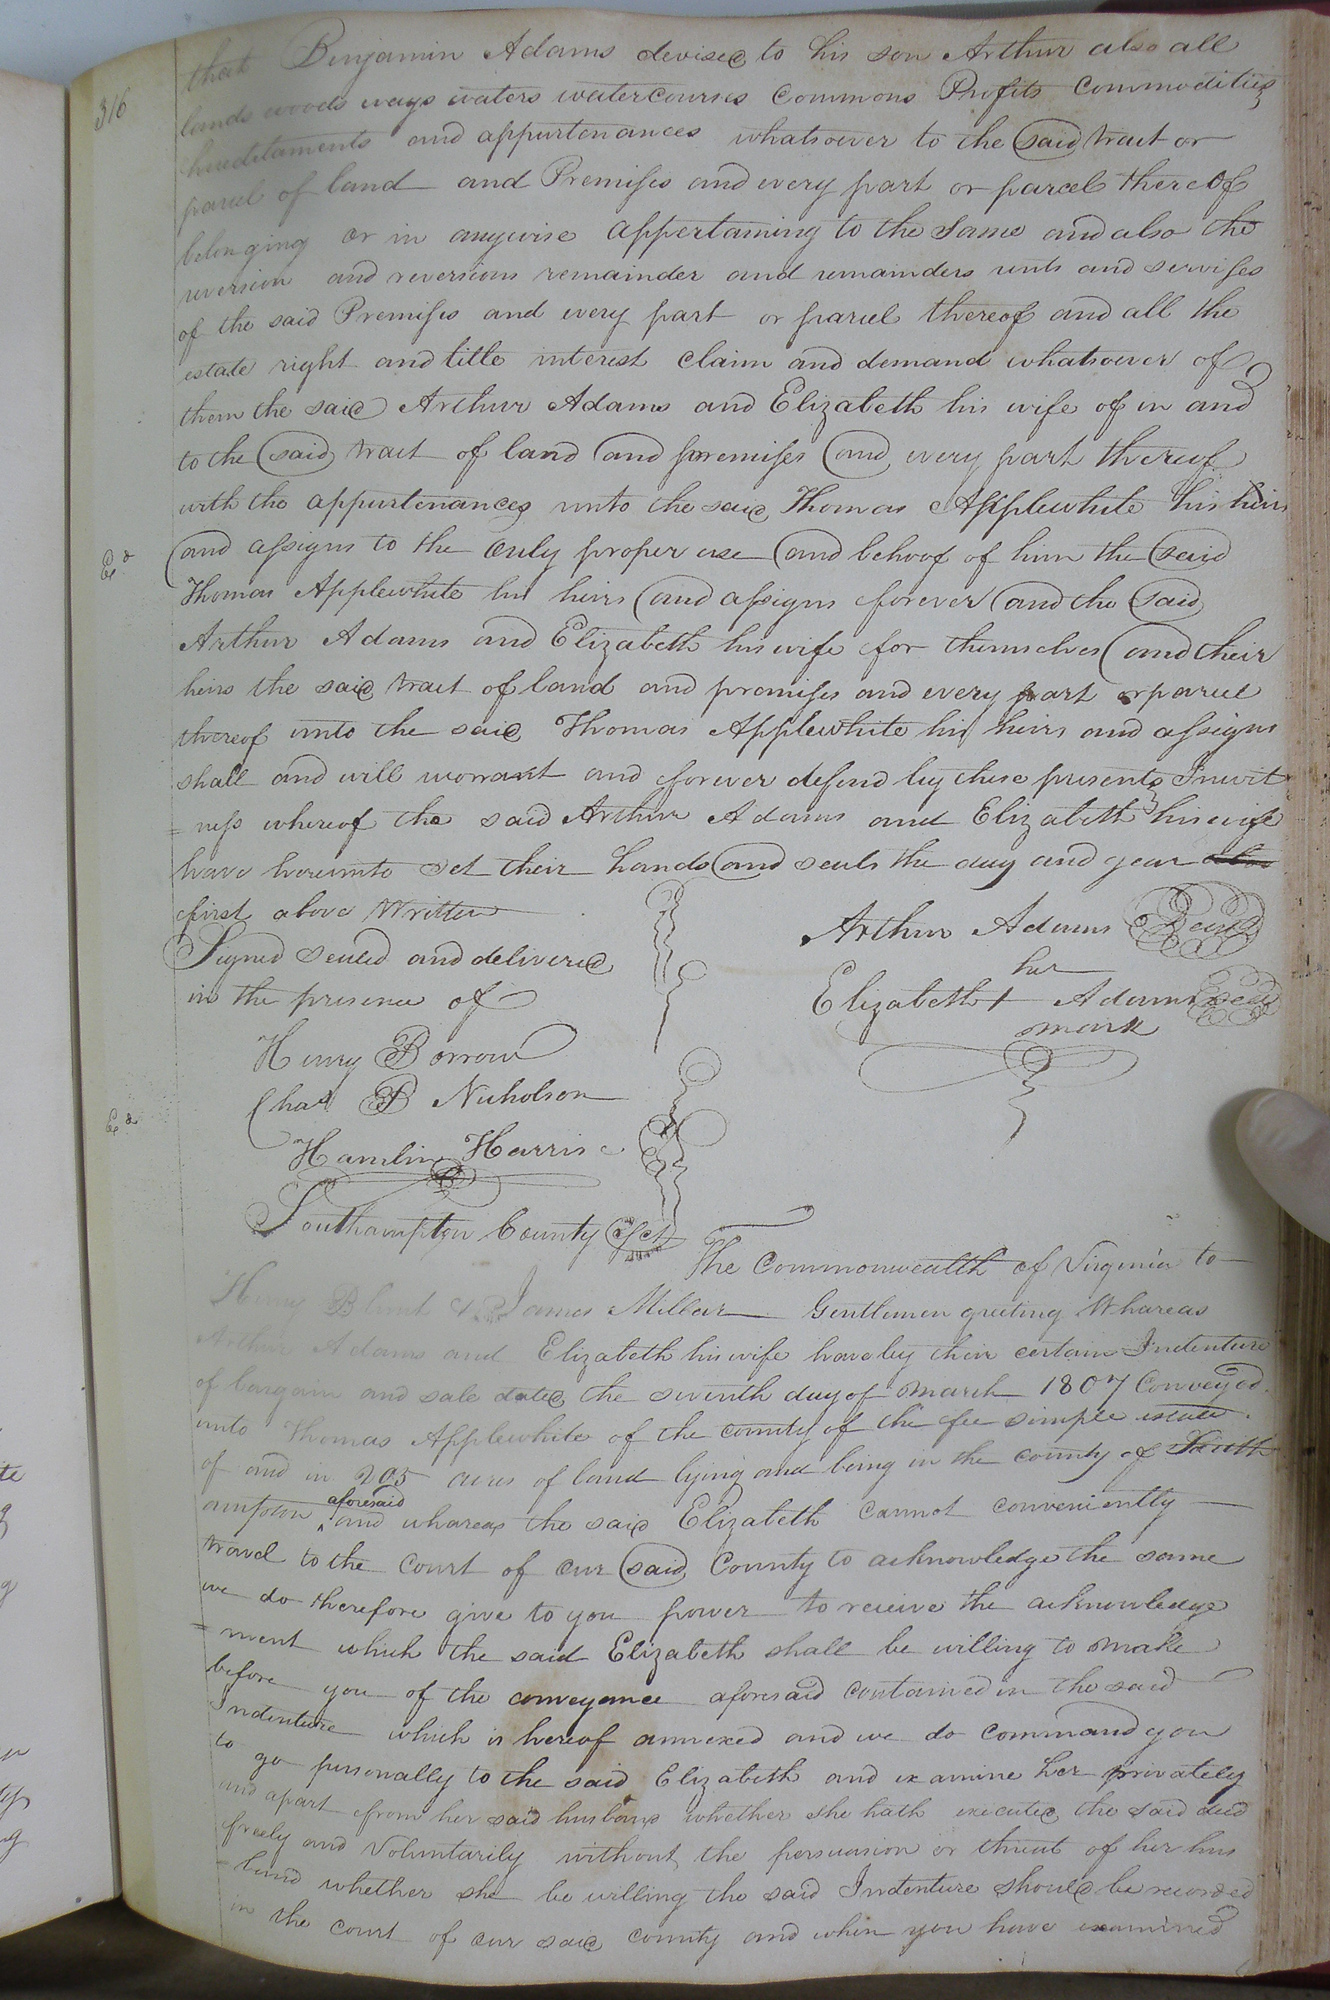 316
that Benjamin Adams devised to his son Arthur also all
lands woods ways waters watercourses Commons Profits Commodities
hereditaments and appurtenances whatsoever to the said tract or
parcel of land and Premises and every part or parcel thereof
belonging or in anywise appertaining to the same and also the
reversion and reversions remainder and remainders rents and servises
of the said Premises and every part or parcel thereof and all the
estate right and title interest claim and demand whatsoever of
them the said Arthur Adams and Elizabeth his wife of in and
to the said tract of land and premises and every part thereof
with the appurtenances unto the said Thomas Applewhite his heirs
and assigns to the only proper use and behoof of him the said
Exd
Thomas Applewhite his heirs and assigns forever and the said
Arthur Adams and Elizabeth his wife for themselves and their
heirs the said tract of land and premises and every part or parcel
thereof unto the said Thomas Applewhite his heirs and assigns
shall and will worrant and forever defend by these presents In wit
=ness whereof the said Arthur Adams and Elizabeth his wife
have hereunto set their hands and seals the day and year
first above Written
Signed sealed and delivered
in the presence of
Arthur Adams Seal
her
Elizabeth + Adams Seal
mark
Henry Borrow
Chas B Nicholson
Exd
Hamlin Harris
Southampton County Sct
The Commonwealth of Virginia to
Henry Blunt & James Millar Gentlemen greeting Whareas
Arthur Adams and Elizabeth his wife have by their certain Indenture
of bargain and sale dated the seventh day of March 1807 Conveyed
unto Thomas Applewhite of the county of the fee simple estate
of and in 205 acres of land lying and being in the county of South
ampton aforesaid and whareas the said Elizabeth cannot conveniently
travel to the court of our said County to acknowledge the same
we do therefore give to you power to receive the acknowledge
=ment which the said Elizabeth shall be willing to make
before you of the conveyance aforesaid contained in the said
Indenture which is hereof annexed and we do command you
to go personally to the said Elizabeth and examine her privately
and apart from her said husband whether she hath executed the said deed
freely and Voluntarily without the persuasion or threat of her hus
=band whether she be willing the said Indenture should be recorded
in the court of our said county and when you have examined